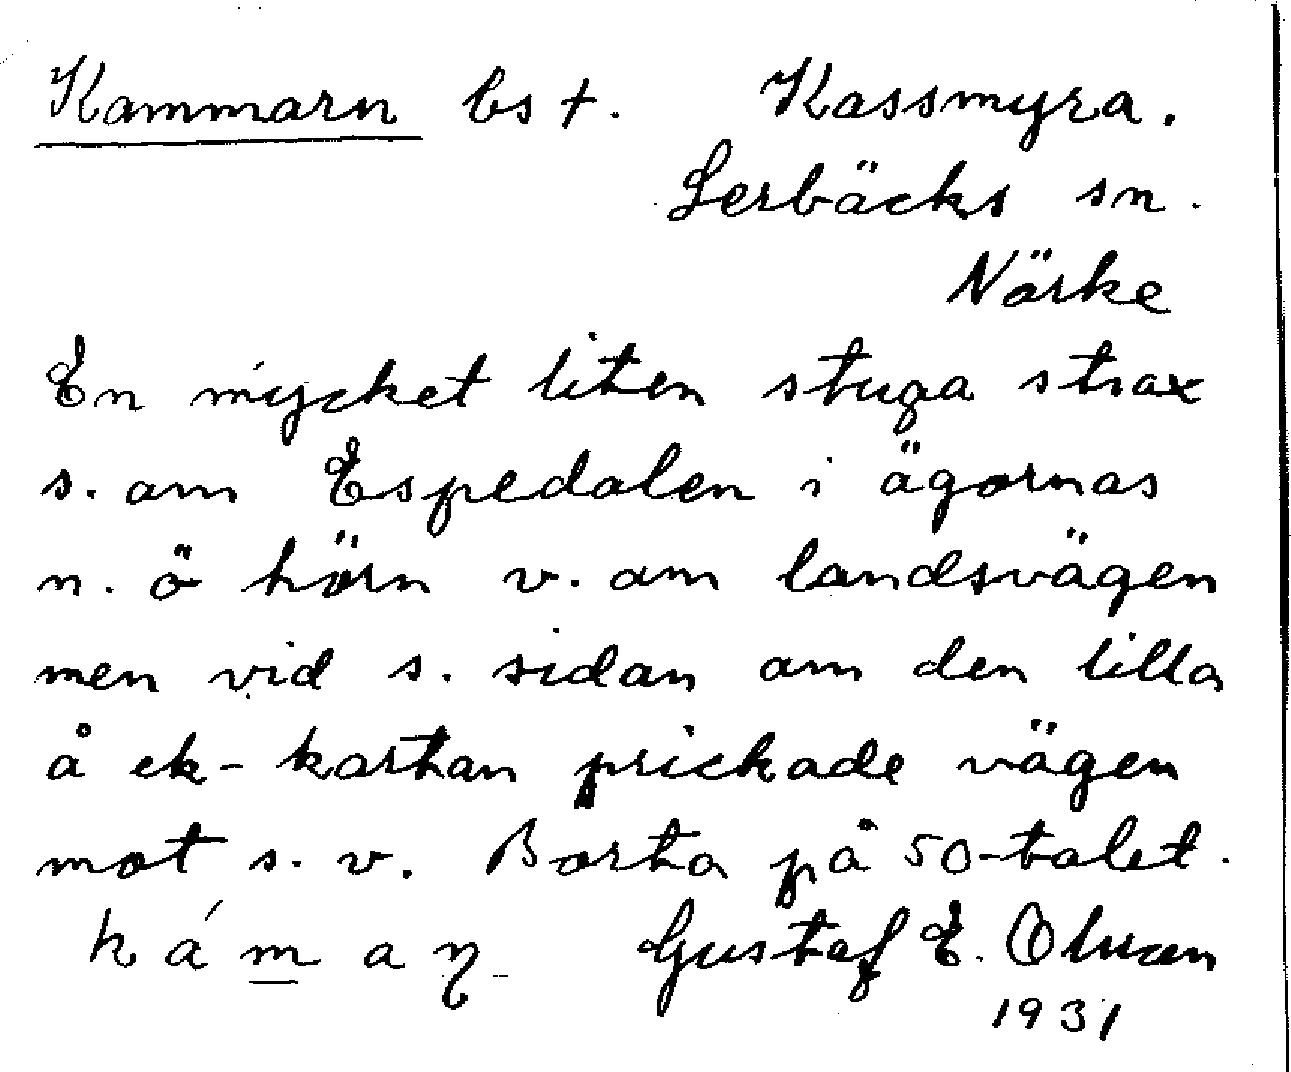 Kammarn bs †. Kassmyra.
Lerbäcks sn.
Närke
En mycket liten stuga strax
s. om Espedalen i ägornas
n. ö hörn v. om landsvägen
men vid s. sidan om den lilla
å ek-kartan prickade vägen
mot s. v. Borta på 50-talet.
Gustaf E.
1931